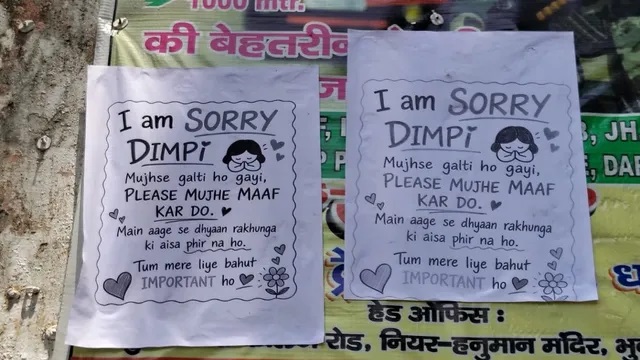 1000 mtr.
की बेहतरीन
I am SORRY
DIMPi
Mujhse galti ho gayi,
PLEASE MUJHE MAAF
KAR DO.
Main aage se dhyaan rakhunga
ki aisa phir na ho.
Tum mere liye bahut
IMPORTANT ho
I am SORRY
DIMPi
Mujhse galti ho gayi,
PLEASE MUJHE MAAF
KAR DO.
Main aage se dhyaan rakhunga
ki aisa phir na ho.
Tum mere liye bahut
IMPORTANT ho
हेड ऑफिस :
रोड, नियर-हनुमान मंदिर,